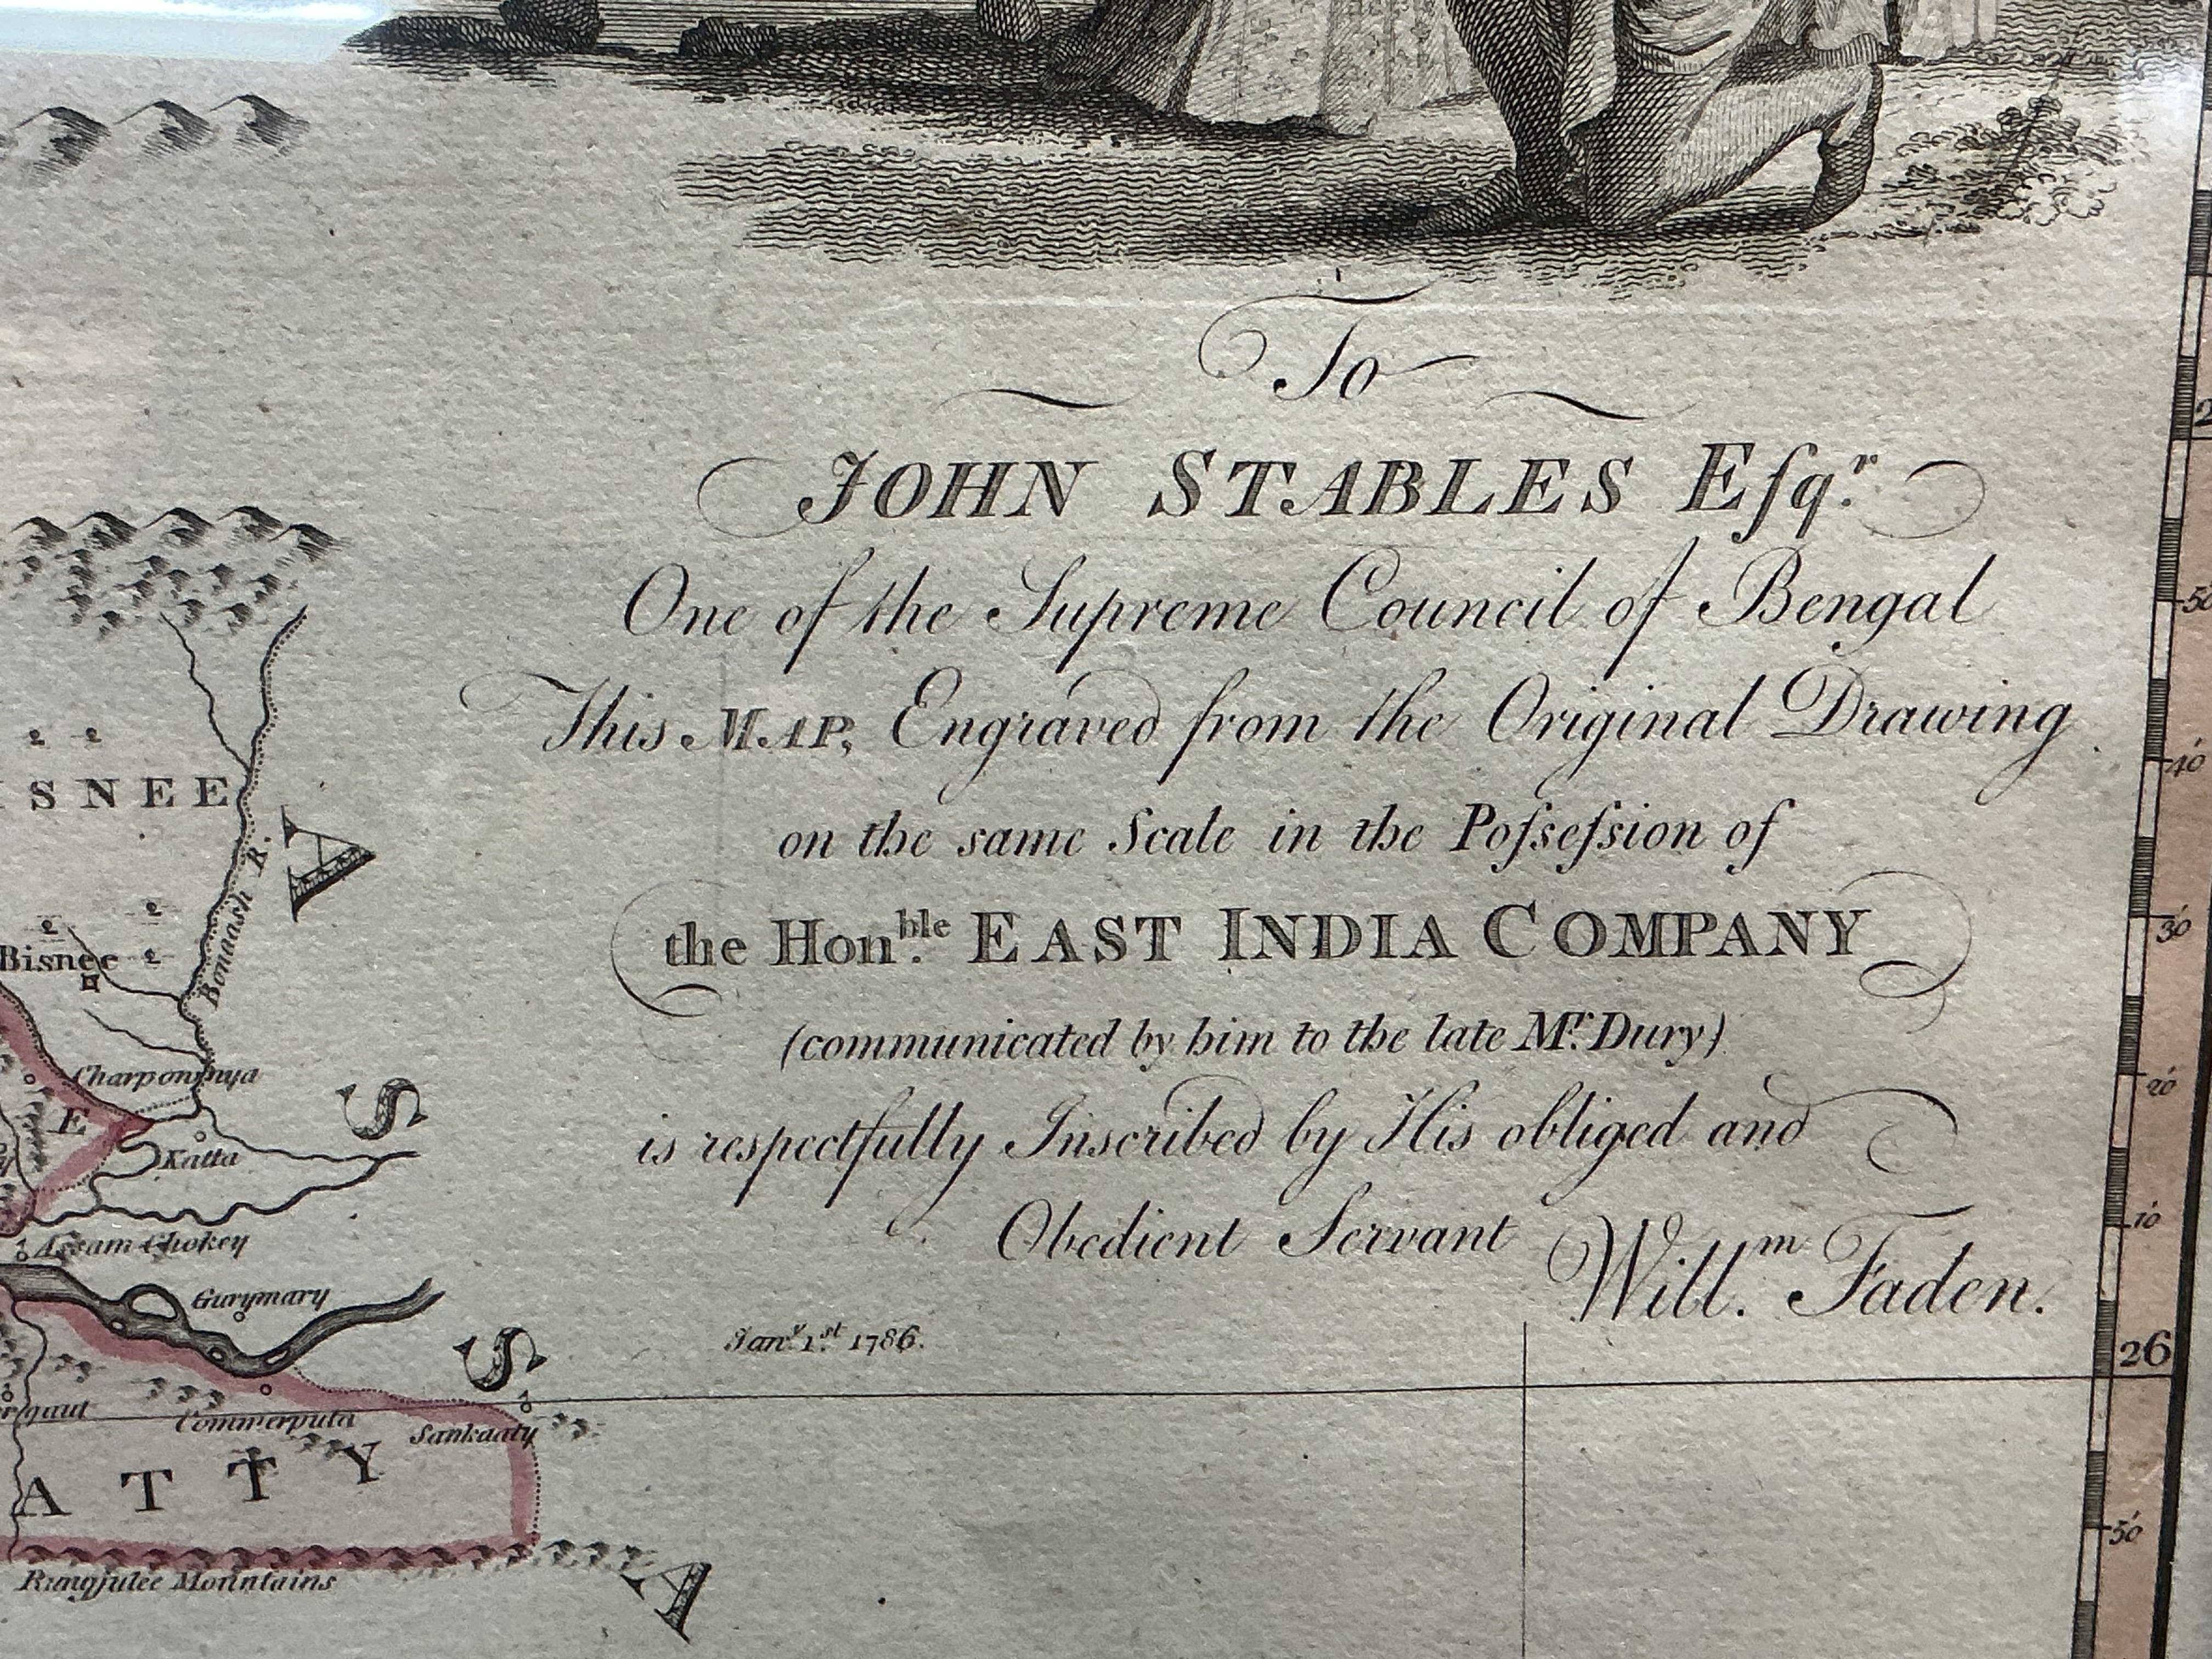 To
JOHN STABLES Eſqr.
One of the Supreme Council of Bengal
This MAP, Engraved from the Original Drawing
on the same Scale in the Poſseſsion of
the Honble. EAST INDIA COMPANY
(communicated by him to the late Mr. Dury)
is respectfully Inscribed by His obliged and
Obedient Servant Willm. Faden.
Jany. 1st. 1786.
SNEE
Bonaash R.
Bisnee
A
Charponinya
E
S
Katta
Assam Chokey
Gurymary
S
Commerputa
Sankaaty
ATTY
A
Rungjulee Mountains
50
40
30
20
10
26
50